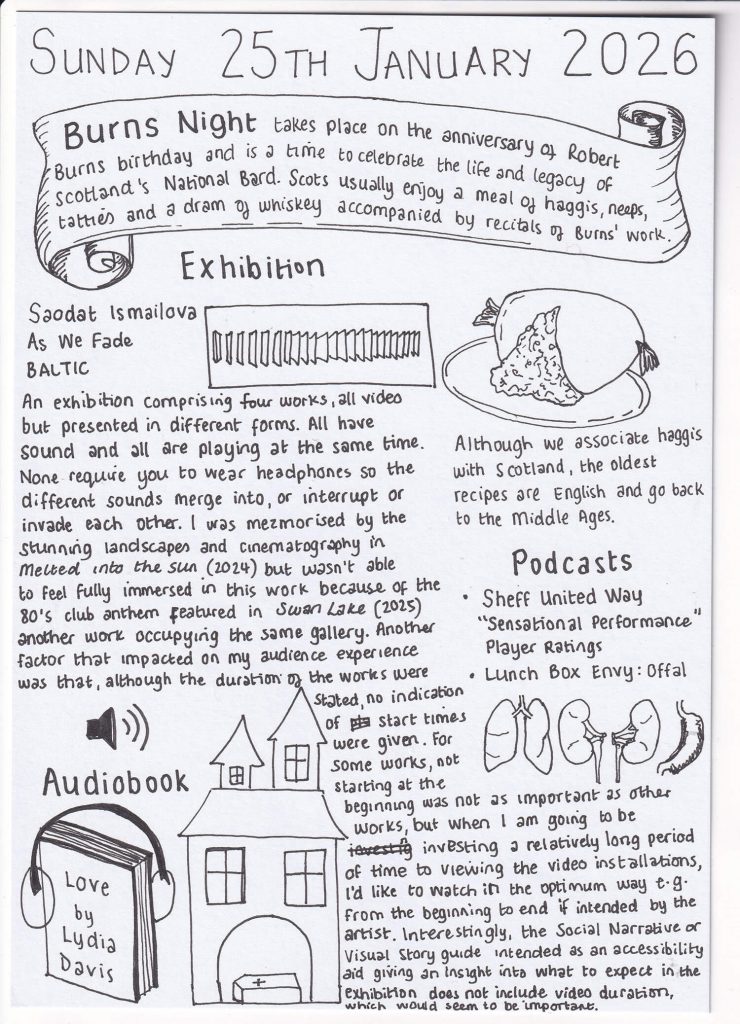 SUNDAY 25TH JANUARY 2026
Burns Night takes place on the anniversary of Robert
Burns birthday and is a time to celebrate the life and legacy of
Scotland's National Bard. Scots usually enjoy a meal of haggis, neeps,
tatties and a dram of whiskey accompanied by recitals of Burns' work.
Exhibition
Saodat Ismailova
As We Fade
BALTIC
An exhibition comprising four works, all video
but presented in different forms. All have
sound and all are playing at the same time.
None require you to wear headphones so the
different sounds merge into, or interrupt or
invade each other. I was mezmorised by the
stunning landscapes and cinematography in
Melted into the Sun (2024) but wasn't able
to feel fully immersed in this work because of the
80's club anthem featured in Swan Lake (2025)
another work occupying the same gallery. Another
factor that impacted on my audience experience
was that, although the duration of the works were
stated, no indication
of start times
were given. For
some works, not
starting at the
beginning was not as important as other
works, but when I am going to be
investing a relatively long period
of time to viewing the video installations,
I'd like to watch in the optimum way e.g.
from the beginning to end if intended by the
artist. Interestingly, the Social Narrative or
Visual Story guide intended as an accessibility
aid giving an insight into what to expect in the
exhibition does not include video duration,
which would seem to be important.
Although we associate haggis
with Scotland, the oldest
recipes are English and go back
to the Middle Ages.
Podcasts
• Sheff United Way
"Sensational Performance"
Player Ratings
• Lunch Box Envy: Offal
Audiobook
Love
by
Lydia
Davis